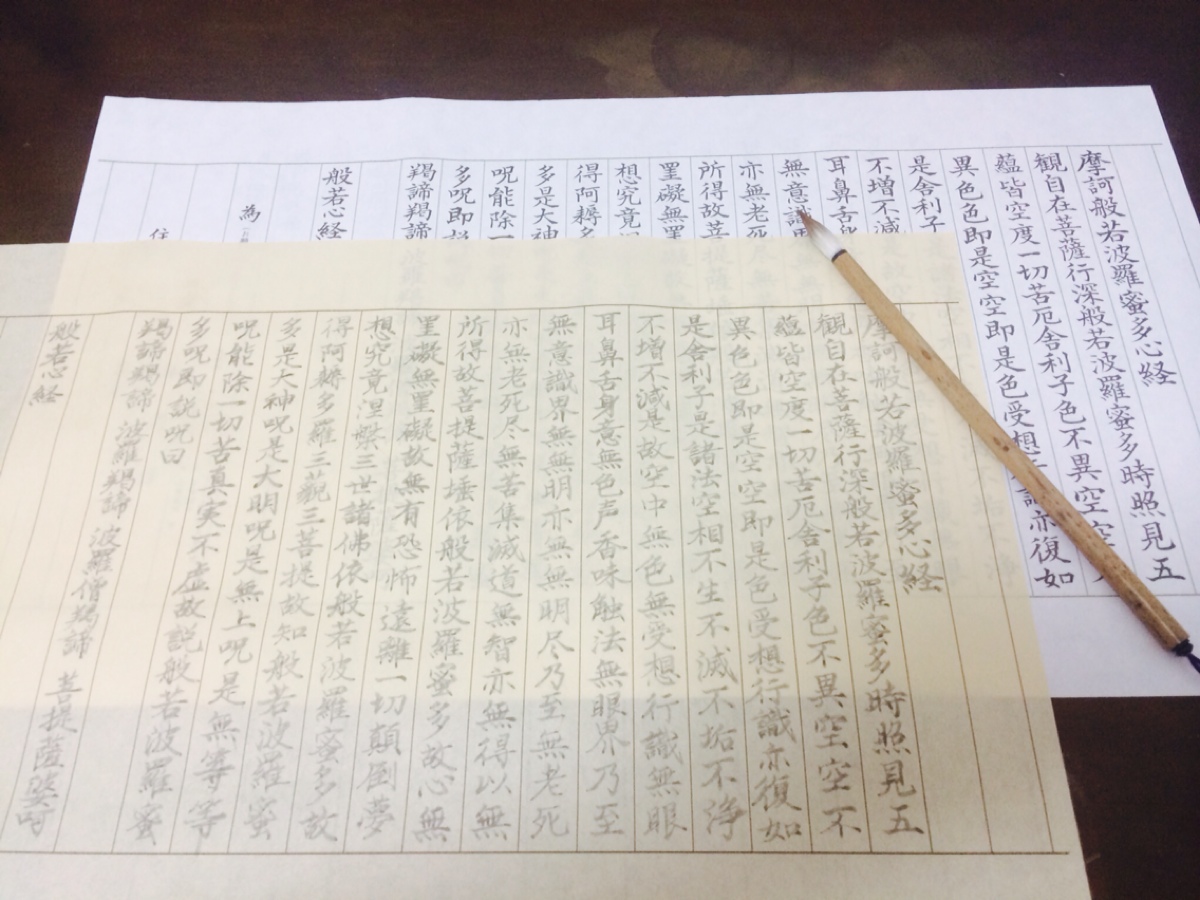 摩訶般若波羅蜜多心経
観自在菩薩行深般若波羅蜜多時照見五
蘊皆空度一切苦厄舎利子色不異空空
異色色即是空空即是色受想 亦復如
是舎利子
不増不減
耳鼻舌
無意識
亦無老死
所得故菩
罣礙無罣
想究竟
得阿耨多
多是大神
呪能除一
多呪即
羯諦羯諦
般若心経
為
住
摩訶般若波羅蜜多心経
観自在菩薩行深般若波羅蜜多時照見五
蘊皆空度一切苦厄舎利子色不異空空不
異色色即是空空即是色受想行識亦復如
是舎利子是諸法空相不生不滅不垢不浄
不増不減是故空中無色無受想行識無眼
耳鼻舌身意無色声香味触法無眼界乃至
無意識界無無明亦無無明尽乃至無老死
亦無老死尽無苦集滅道無智亦無得以無
所得故菩提薩埵依般若波羅蜜多故心無
罣礙無罣礙故無有恐怖遠離一切顛倒夢
想究竟涅槃三世諸佛依般若波羅蜜多故
得阿耨多羅三藐三菩提故知般若波羅蜜
多是大神呪是大明呪是無上呪是無等等
呪能除一切苦真実不虚故説般若波羅蜜
多呪即説呪曰
羯諦羯諦 波羅羯諦 波羅僧羯諦 菩提薩婆訶
般若心経